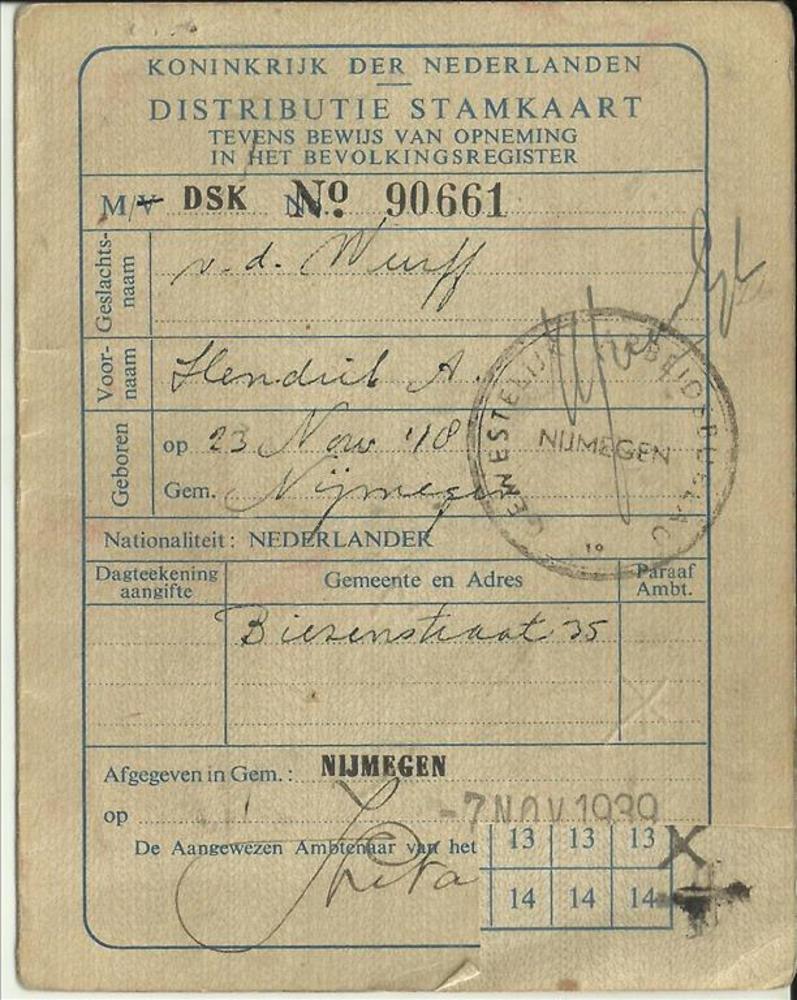 KONINKRIJK DER NEDERLANDEN
DISTRIBUTIE STAMKAART
TEVENS BEWIJS VAN OPNEMING
IN HET BEVOLKINGSREGISTER
M/V DSK Nº 90661
Geslachts-
naam
v. d. Wurff
Voor-
naam
Hendrik A.
Geboren
op 23 Nov '18
Gem. Nijmegen
NIJMEGEN
Nationaliteit: NEDERLANDER
Dagteekening
aangifte
Gemeente en Adres
Paraaf
Ambt.
Biezenstraat 35
Afgegeven in Gem.: NIJMEGEN
op -7 NOV 1939
De Aangewezen Ambtenaar van het
13 13 13
14 14 14